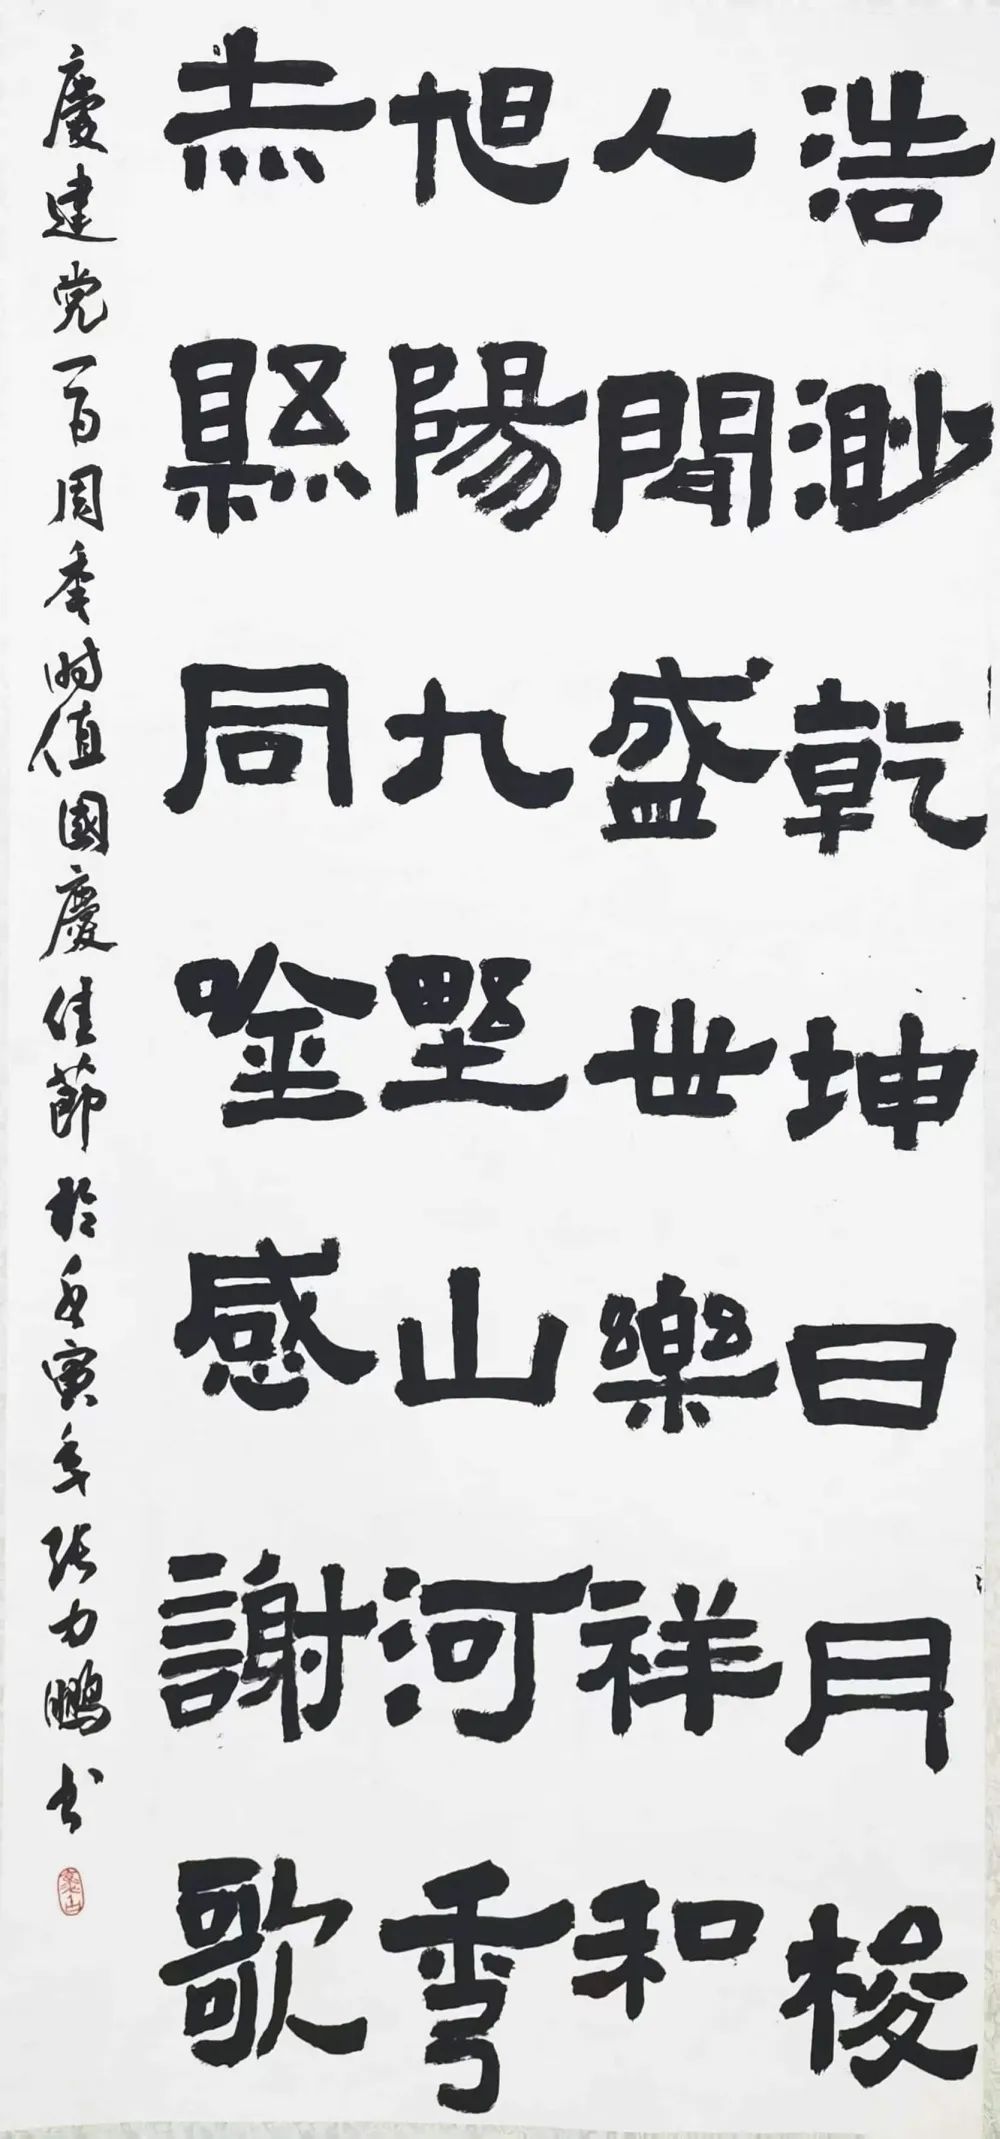 浩渺乾坤日月梭
人間盛世樂祥和
旭陽九野山河秀
赤縣同唫感謝歌
慶建党一百周年时值國慶佳節於壬寅年张力鹏书